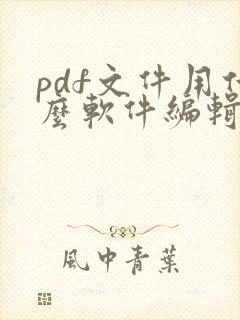 pdf文件用什
麼軟件編輯
風中青葉